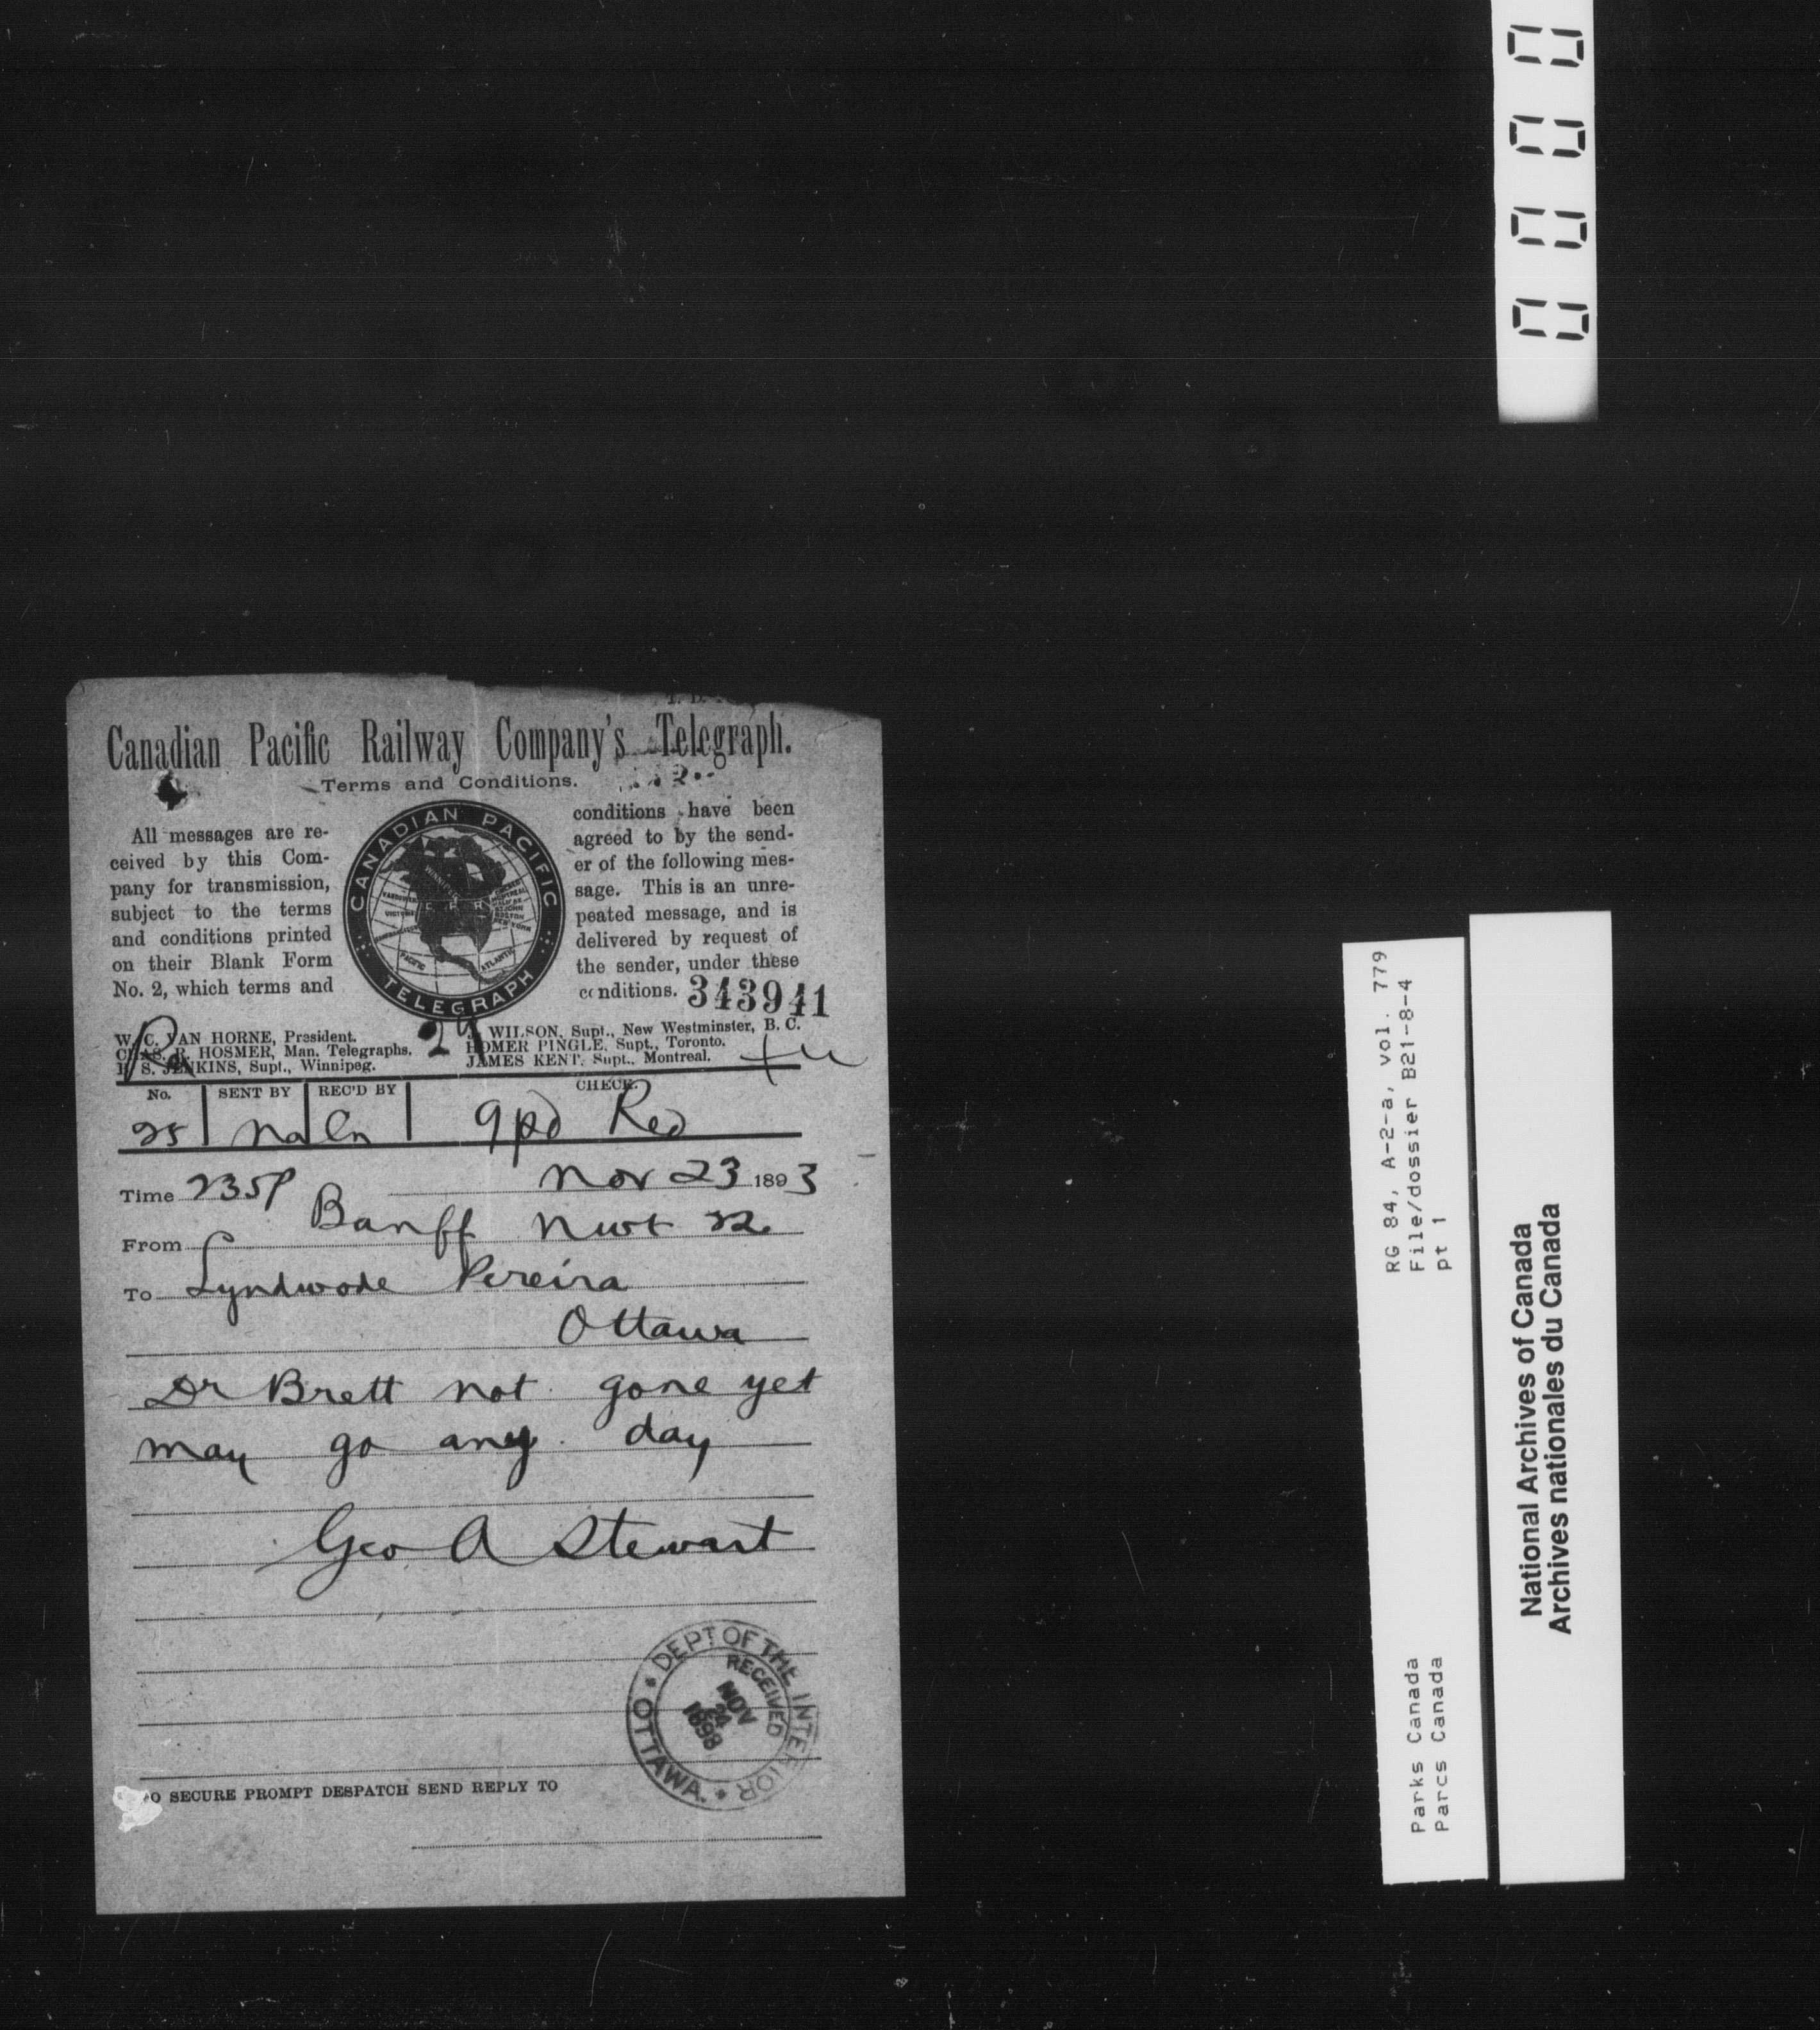 Canadian Pacific Railway Company's Telegraph.
Terms and Conditions.
All messages are re-
ceived by this Com-
pany for transmission,
subject to the terms
and conditions printed
on their Blank Form
No. 2, which terms and
CANADIAN PACIFIC
TELEGRAPH
conditions have been
agreed to by the send-
er of the following mes-
sage. This is an unre-
peated message, and is
delivered by request of
the sender, under these
conditions. 343941
W. C. VAN HORNE, President.
CHAS. R. HOSMER, Man. Telegraphs.
B. S. JENKINS, Supt., Winnipeg.
J. WILSON, Supt., New Westminster, B. C.
HOMER PINGLE, Supt., Toronto.
JAMES KENT, Supt., Montreal.
No. SENT BY REC'D BY CHECK.
25 Na Cn 9pd Red
Time 235P Nov 23 1893
From Banff Nwt 22
To Lyndwode Pereira
Ottawa
Dr Brett not gone yet
may go any day
Geo A Stewart
DEPT OF THE INTERIOR
RECEIVED
NOV
24
1893
OTTAWA.
TO SECURE PROMPT DESPATCH SEND REPLY TO
0000
RG 84, A-2-a, vol. 779
File/dossier B21-8-4
pt 1
Parks Canada
Parcs Canada
National Archives of Canada
Archives nationales du Canada